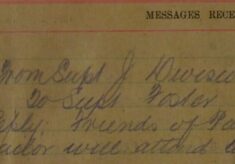 MESSAGES RECE
From Supt J Divisio
To Supt Foster
Friends of
will attend